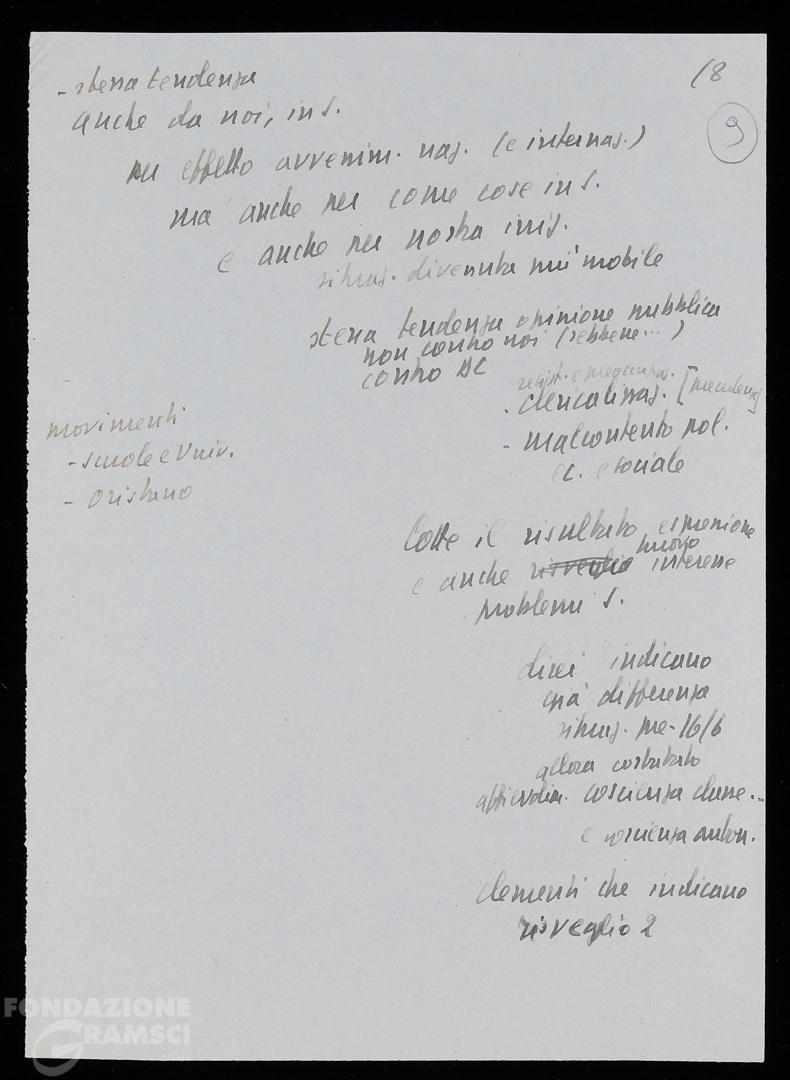 18
9
- stessa tendenza
anche da noi, in S.
per effetto avvenim. naz. (e internaz.)
ma anche per come cose in S.
e anche per nostra iniz.
situaz. divenuta più mobile
stessa tendenza opinione pubblica
non contro noi (sebbene...)
contro DC
- clericalizzaz.
- malcontento pol.
ec. e sociale
movimenti
- scuole e Univ.
- Oristano
il risultato espressione
e anche risveglio nuovo interesse
problemi S.
direi indicano
già differenza
situaz. pre-16/6
allora constatato
affievolim. coscienza classe...
e coscienza auton.
elementi che indicano
risveglio 2
FONDAZIONE
GRAMSCI
onlus